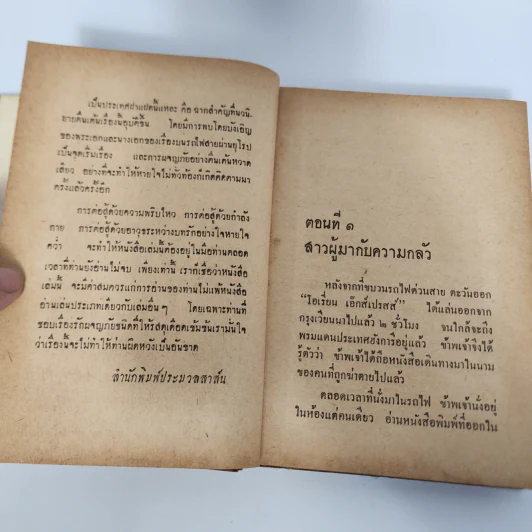 เป็นประเทศฝาแฝดนี้แหละ คือ ฉากสำคัญที่นวนิ-
ยายตื่นเต้นเรื่องนี้อุบัติขึ้น โดยมีการพบโดยบังเอิญ
ของพระเอกและนางเอกของเรื่องบนรถไฟสายผ่านยุโรป
เป็นจุดเริ่มเรื่อง และการผจญภัยอย่างตื่นเต้นหวาด
เสียว อย่างที่จะทำให้หายใจไม่ทั่วท้องก็เกิดติดตามมา
ครั้งแล้วครั้งอีก
การต่อสู้ด้วยความพริบไหว การต่อสู้ด้วยกำลัง
กาย การต่อสู้ด้วยอาวุธระหว่างบทรักอย่างใจหายใจ
คว่ำ จะทำให้หนังสือเล่มนี้ต้องอยู่ในมือท่านตลอด
เวลาที่ท่านยังอ่านไม่จบ เพียงเท่านี้ เราก็เชื่อว่าหนังสือ
เล่มนี้ จะมีค่าสมควรแก่การอ่านของท่านไม่แพ้หนังสือ
อ่านเล่นประเภทเดียวกับเล่มอื่นๆ โดยเฉพาะท่านที่
ชอบเรื่องรักผจญภัยชนิดที่ให้รสดุเดือดเข้มข้นเรามั่นใจ
ว่าเรื่องนี้จะไม่ทำให้ท่านผิดหวังเป็นอันขาด
สำนักพิมพ์ประมวลสาส์น
ตอนที่ ๑
สาวผู้มากับความกลัว
หลังจากที่ขบวนรถไฟด่วนสาย ตะวันออก
“โอเรียน เอ๊กส์เปรสส์” ได้แล่นออกจาก
กรุงเวียนนาไปแล้ว ๒ ชั่วโมง จนใกล้จะถึง
พรมแดนประเทศฮังการีอยู่แล้ว ข้าพเจ้าจึงได้
รู้ตัวว่า ข้าพเจ้าได้ถือหนังสือเดินทางมาในนาม
ของคนที่ถูกฆ่าตายไปแล้ว
ตลอดเวลาที่นั่งมาในรถไฟ ข้าพเจ้านั่งอยู่
ในห้องแต่คนเดียว อ่านหนังสือพิมพ์ที่ออกใน